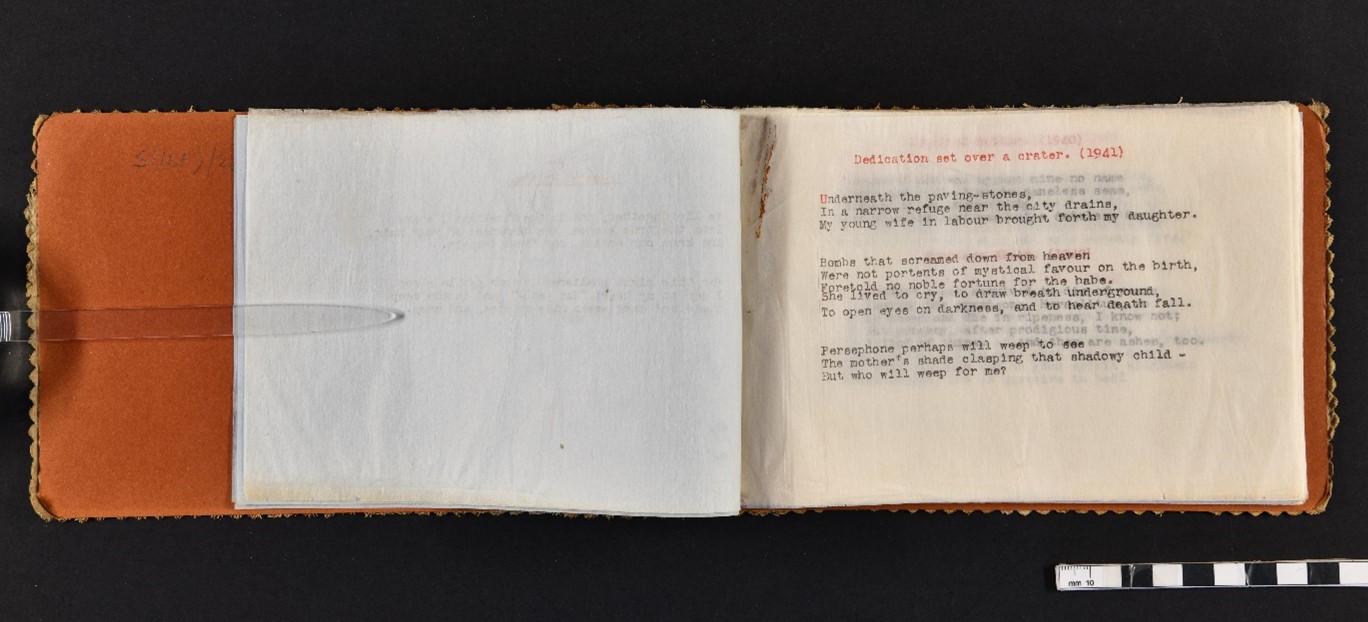 Dedication set over a crater. (1941)
Underneath the paving-stones,
In a narrow refuge near the city drains,
My young wife in labour brought forth my daughter.
Bombs that screamed down from heaven
Were not portents of mystical favour on the birth,
Foretold no noble fortune for the babe.
She lived to cry, to draw breath underground,
To open eyes on darkness, and to hear death fall.
Persephone perhaps will weep to see
The mother's shade clasping that shadowy child -
But who will weep for me?
mm 10